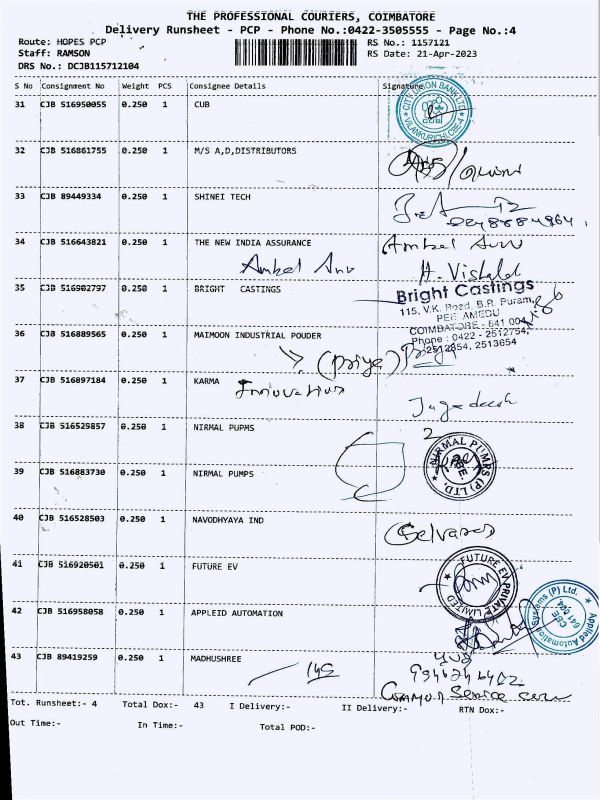 THE PROFESSIONAL COURIERS, COIMBATORE
Delivery Runsheet - PCP - Phone No.:0422-3505555 - Page No.:4
Route: HOPES PCP RS No.: 1157121
Staff: RAMSON RS Date: 21-Apr-2023
DRS No.: DCJB115712104
S No Consignment No Weight PCS Consignee Details Signature
31 CJB 516950055 0.250 1 CUB
CITY UNION BANK LTD
VILANKURICHI CBE-4
32 CJB 516861755 0.250 1 M/S A,D,DISTRIBUTORS
33 CJB 89449334 0.250 1 SHINEI TECH
34 CJB 516643821 0.250 1 THE NEW INDIA ASSURANCE
35 CJB 516902797 0.250 1 BRIGHT CASTINGS
Bright Castings
115, V.K. Road, B.R. Puram,
PEE AMEDU
COIMBATORE - 641 004
Phone : 0422 - 2512754,
2512854, 2513654
36 CJB 516889565 0.250 1 MAIMOON INDUSTRIAL POUDER
(Priya)
37 CJB 516897184 0.250 1 KARMA
Jagadeesh
38 CJB 516529857 0.250 1 NIRMAL PUPMS
2
NIRMAL PUMPS (P) LTD.
39 CJB 516883730 0.250 1 NIRMAL PUMPS
40 CJB 516528503 0.250 1 NAVODHYAYA IND
Selvaraj
41 CJB 516920501 0.250 1 FUTURE EV
FUTURE EV PRIVATE LIMITED
42 CJB 516958058 0.250 1 APPLEID AUTOMATION
Applied Automation Systems (P) Ltd.
CBE
641 004
43 CJB 89419259 0.250 1 MADHUSHREE
Tot. Runsheet:- 4 Total Dox:- 43 I Delivery:- II Delivery:- RTN Dox:-
Out Time:- In Time:- Total POD:-